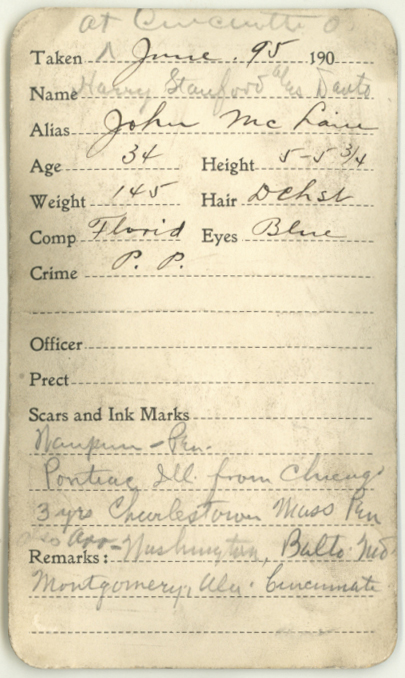 at Cincinatti O
Taken June. 95 190
Name Harry Stanford als Davis
Alias John Mc Lain
Age 34 Height 5-5 3/4
Weight 145 Hair D Chst
Comp Florid Eyes Blue
Crime P. P.
Officer
Prect
Scars and Ink Marks
Waupun - Pen.
Pontiac Ill. from Chicago
3 yrs Charlestown Mass Pen
Arr- Washington, Balto. Md
Remarks:
Montgomery, Ala. Cincinnate